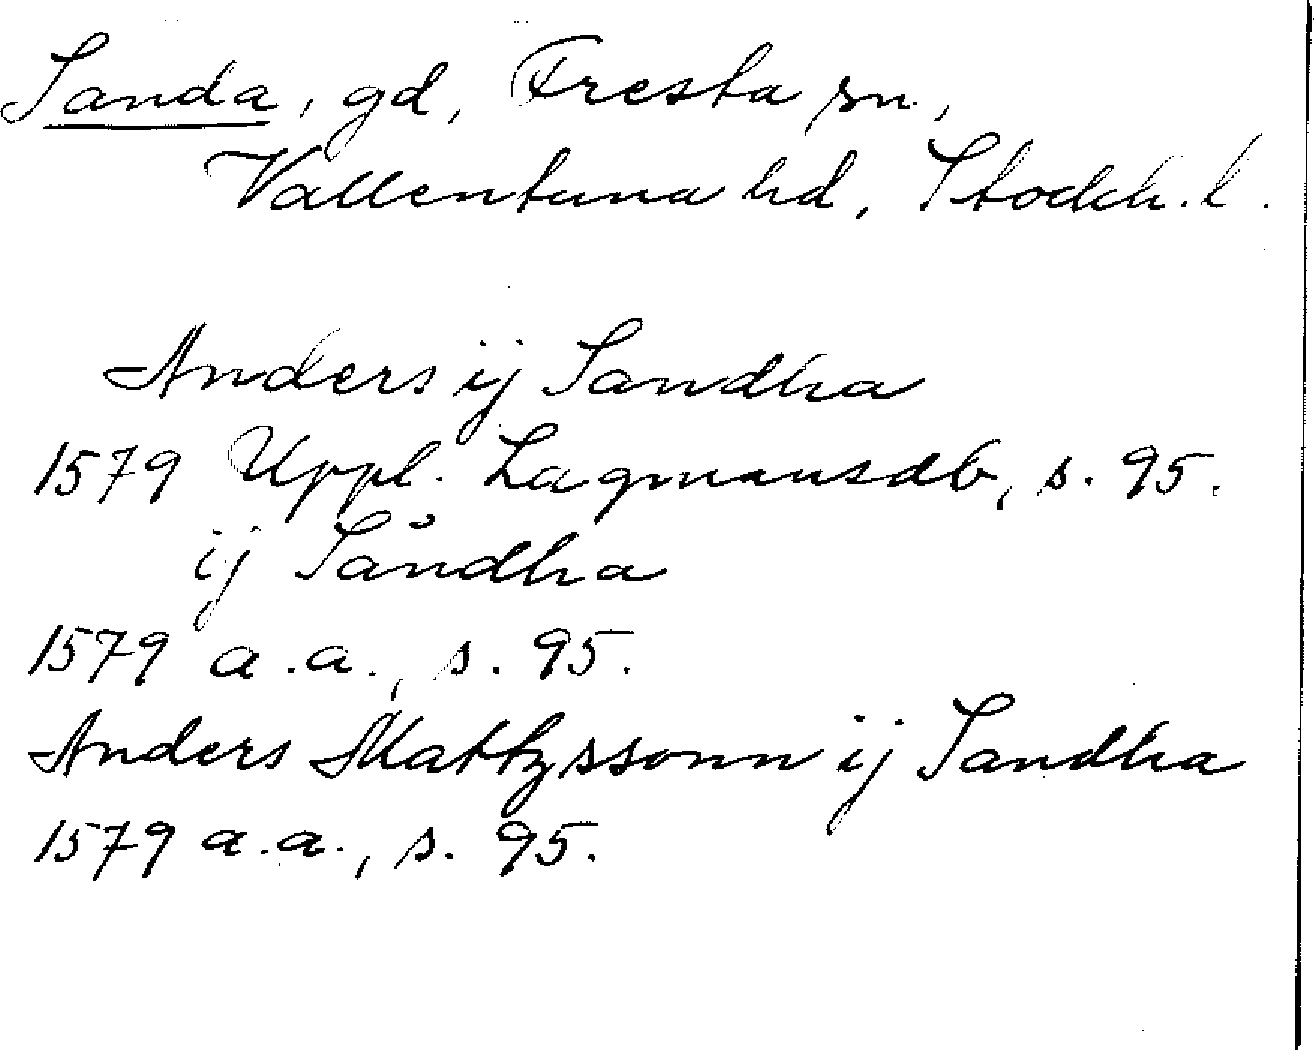 Sanda, gd, Fresta sn,
Vallentuna hd, Stockh. l.
Anders ij Sandha
1579 Uppl. Lagmansdb, s. 95.
ij Såndha
1579 a.a., s. 95.
Anders Mattzssonn ij Sandha
1579 a.a., s. 95.